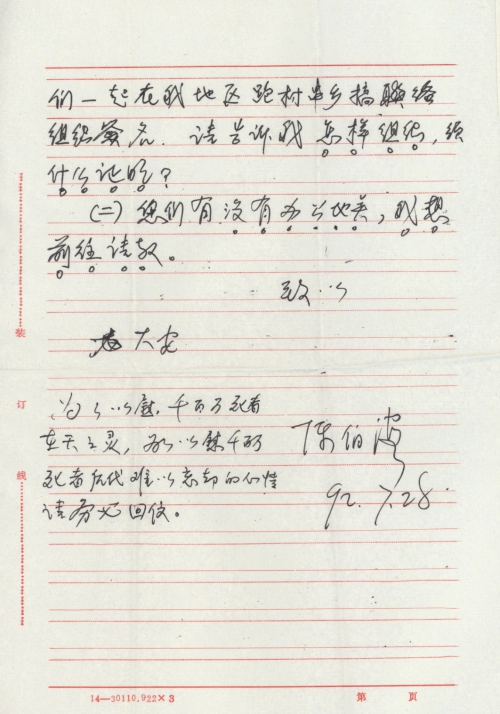 们一起在我地区跑村串乡搞联络
组织签名. 请告诉我怎样组织, 须
什么证明?
(二) 您们有没有办公地点, 我想
前往请教。
致以
大安
为了以慰, 千百万死者
在天之灵, 为以慰千万
死者后代难以忘却的心情
请务必回信。
陈伯
92.7.28
装
订
线
14—30110.922×3
第 页